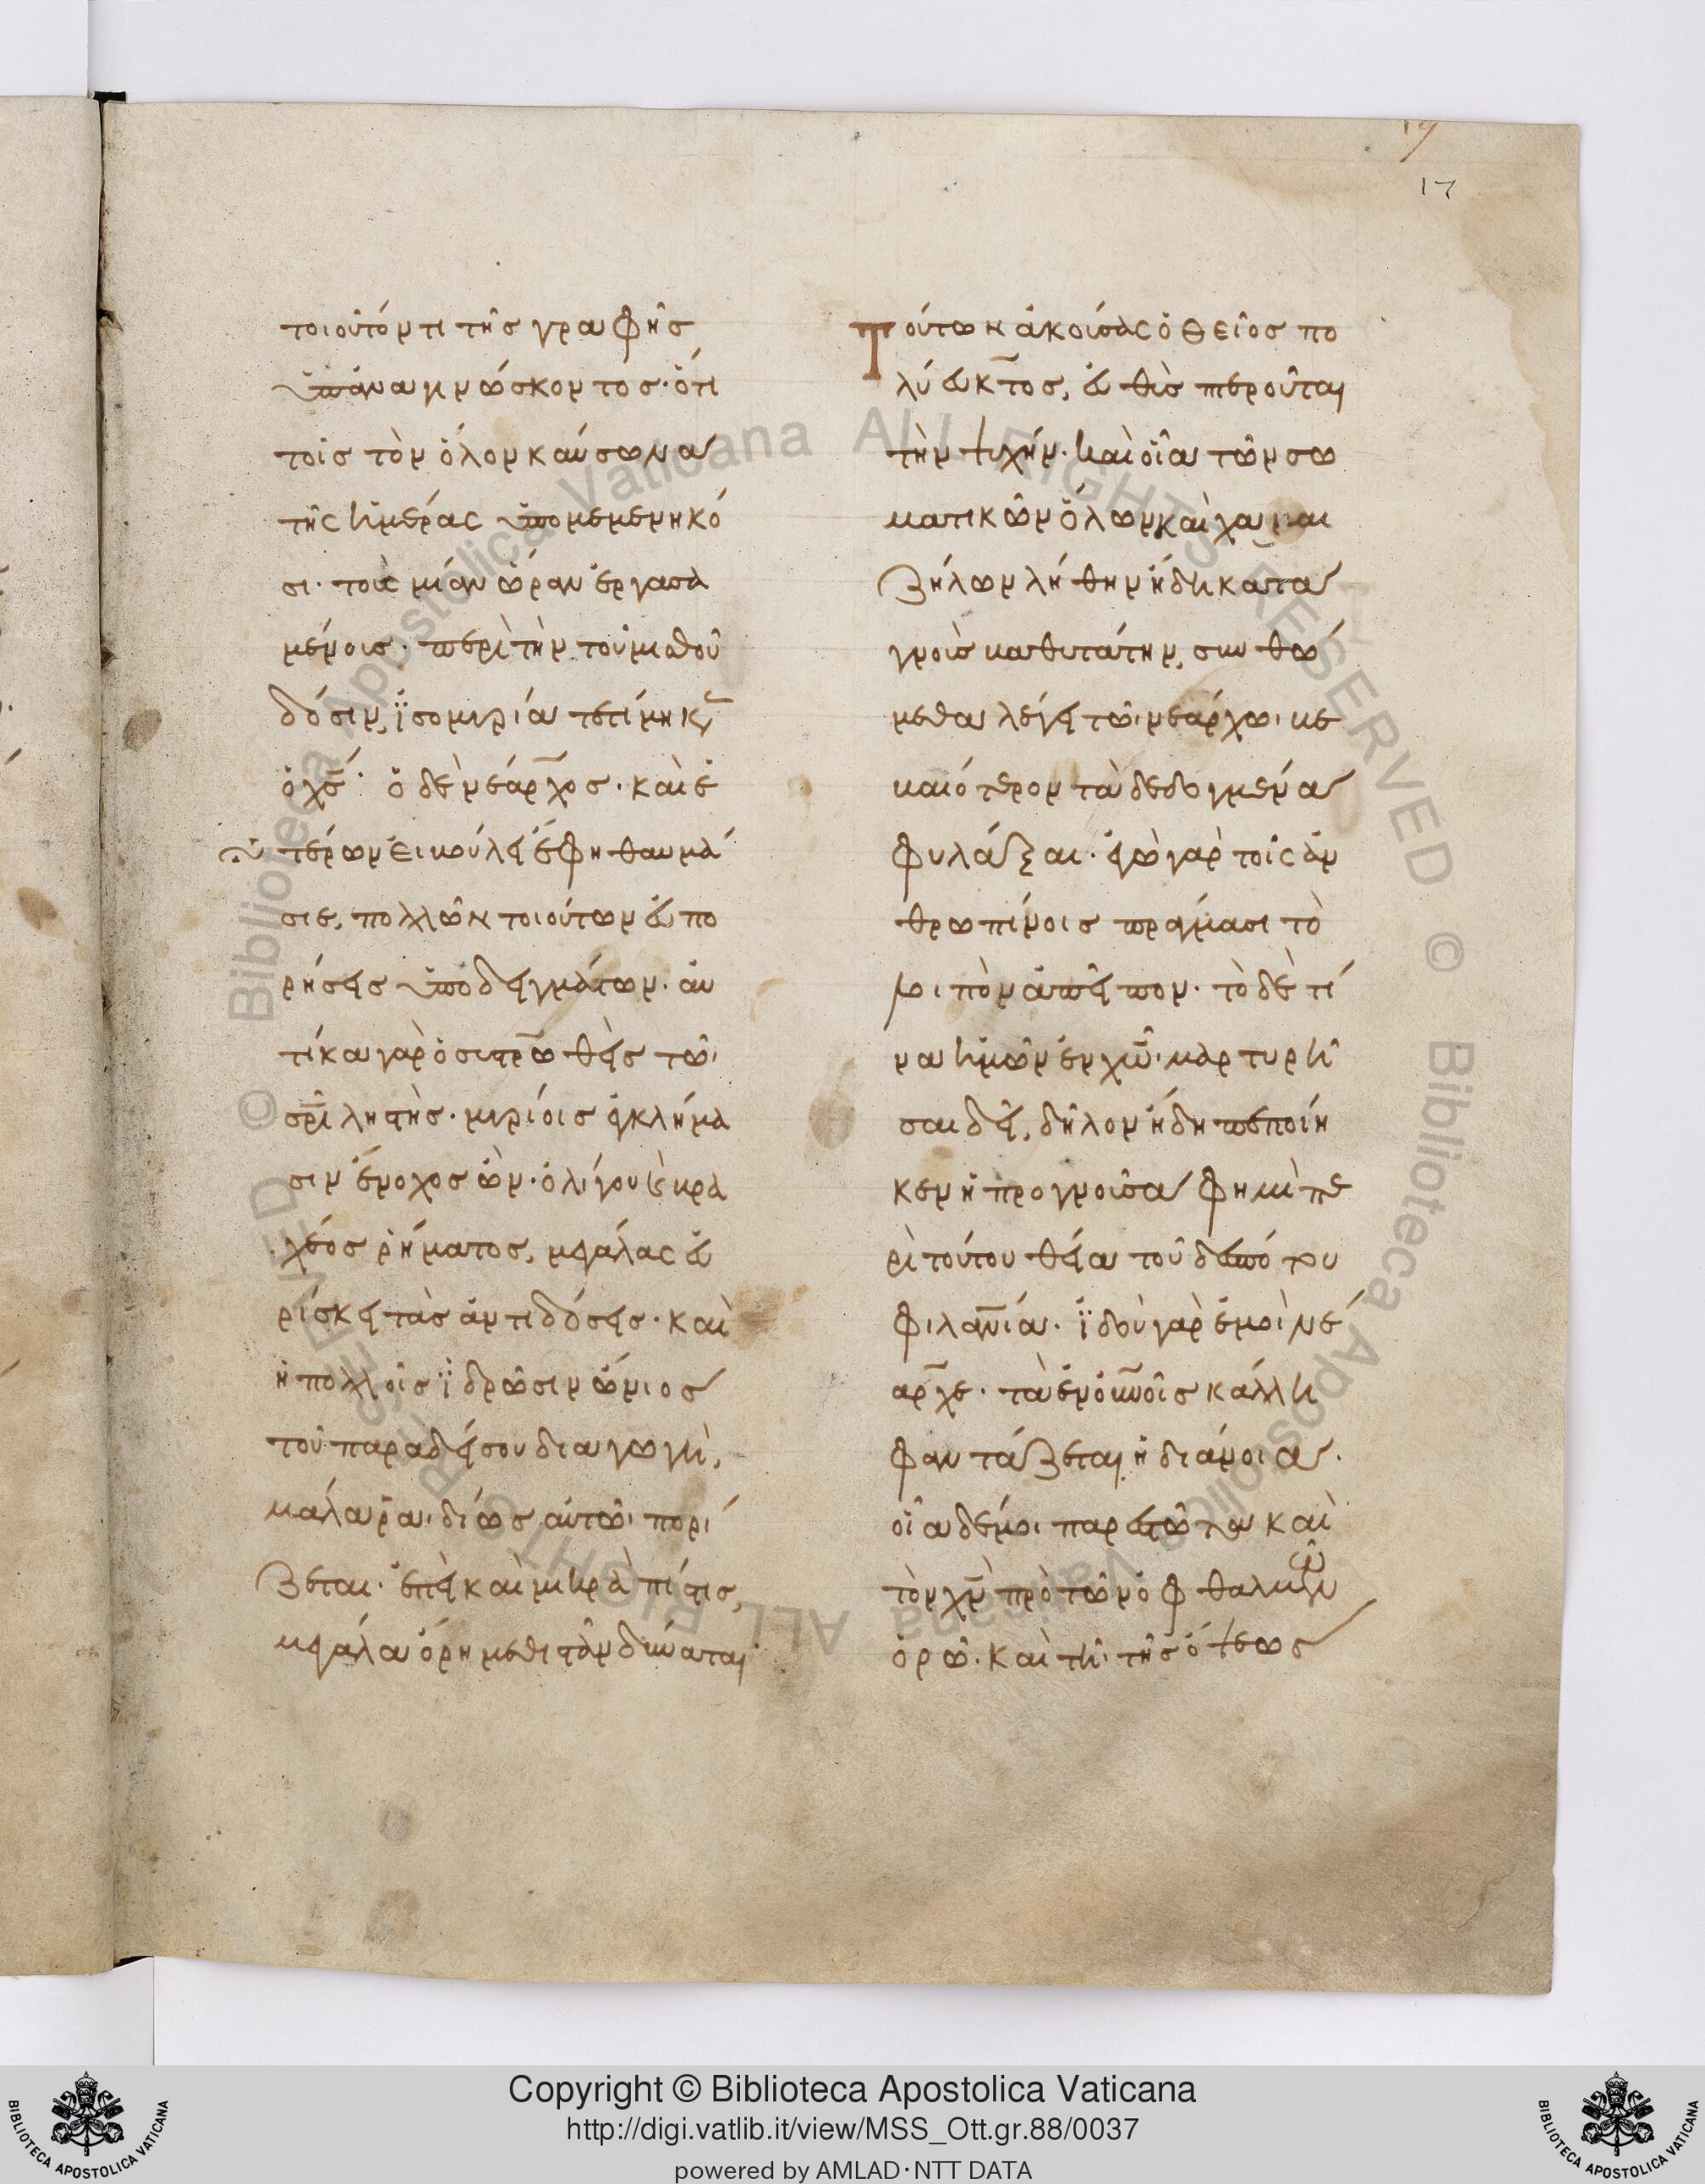 17
τοιοῦτόν τι τῆς γραφῆς
ὑπαναγινώσκοντος· ὅτι
τοῖς τὸν ὅλον καύσωνα
τῆς ἡμέρας ὑπομεμενηκό
σι· τοὺς μίαν ὥραν ἐργασα
μένοις· περὶ τὴν τοῦ μισθοῦ
δόσιν, ἰσομοιρία τετίμηκ
ὁ δὲ νέαρχος· καὶ ἑ
τέρων ἔφη θαυμά
σιε, πολλῶν τοιούτων εὐπο
ρήσεις ὑποδειγμάτων· αὐ
τίκα γὰρ ὁ συστρωθεὶς τῶι
σρι ληστὴς· μυρίοις ἐγκλήμα
σιν ἔνοχος ὢν· ὀλίγου καὶ βρα
χέος ῥήματος, μεγάλας εὑ
ρίσκει τὰς ἀντιδόσεις· καὶ
ἡ πολλοῖς ἱδρῶσιν ὤνιος
τοῦ παραδείσου διαγωγὴ,
μάλα ῥαιδίως αὐτῶι πορί
ζεται· ἐπεὶ καὶ μικρὰ πίστις,
μεγάλα ὄρη μεθιστᾶν δύναται
Τούτων ἀκούσας ὁ θεῖος πο
λύευκτος, εὐθὺς πτεροῦται
τὴν ψυχήν· καὶ οἷα τῶν σω
ματικῶν ὅλων καὶ χαμαι
ζήλων λήθην ἤδη κατα
γνοὺς καθυτάτην, συνθώ
μεθα λέγει τῶι νεάρχωι βε
βαιότερον τὰ δεδογμένα
φυλάξαι· ἐγὼ γὰρ τοῖς ἀν
θρωπίνοις πράγμασι τὸ
λοιπὸν ἀπεῖπον· τὸ δὲ τί
να ἡμῶν ἐν χωι μαρτυρῆ
σαι δεῖ, δῆλον ἤδη πεποίη
κεν ἡ προγνοῦσα φημὶ πε
ρὶ τούτου θεία τοῦ δεσπότου
φιλανια· ἰδοὺ γὰρ ἐμοὶ νέ
αρχε· τὰ ἐν οὐνοῖς κάλλη
φαντάζεται ἡ διάνοια·
οἷα δέ μοι παρεστῶτα καὶ
τὸν χν πρὸ τῶν ὀφθαλμῶν
ὁρῶ· καὶ τῆι τῆς ὄψεως
Copyright © Biblioteca Apostolica Vaticana
http://digi.vatlib.it/view/MSS_Ott.gr.88/0037
powered by AMLAD·NTT DATA
BIBLIOTECA APOSTOLICA VATICANA
BIBLIOTECA APOSTOLICA VATICANA
© Biblioteca Apostolica Vaticana ALL RIGHTS RESERVED
© Biblioteca Apostolica Vaticana ALL RIGHTS RESERVED